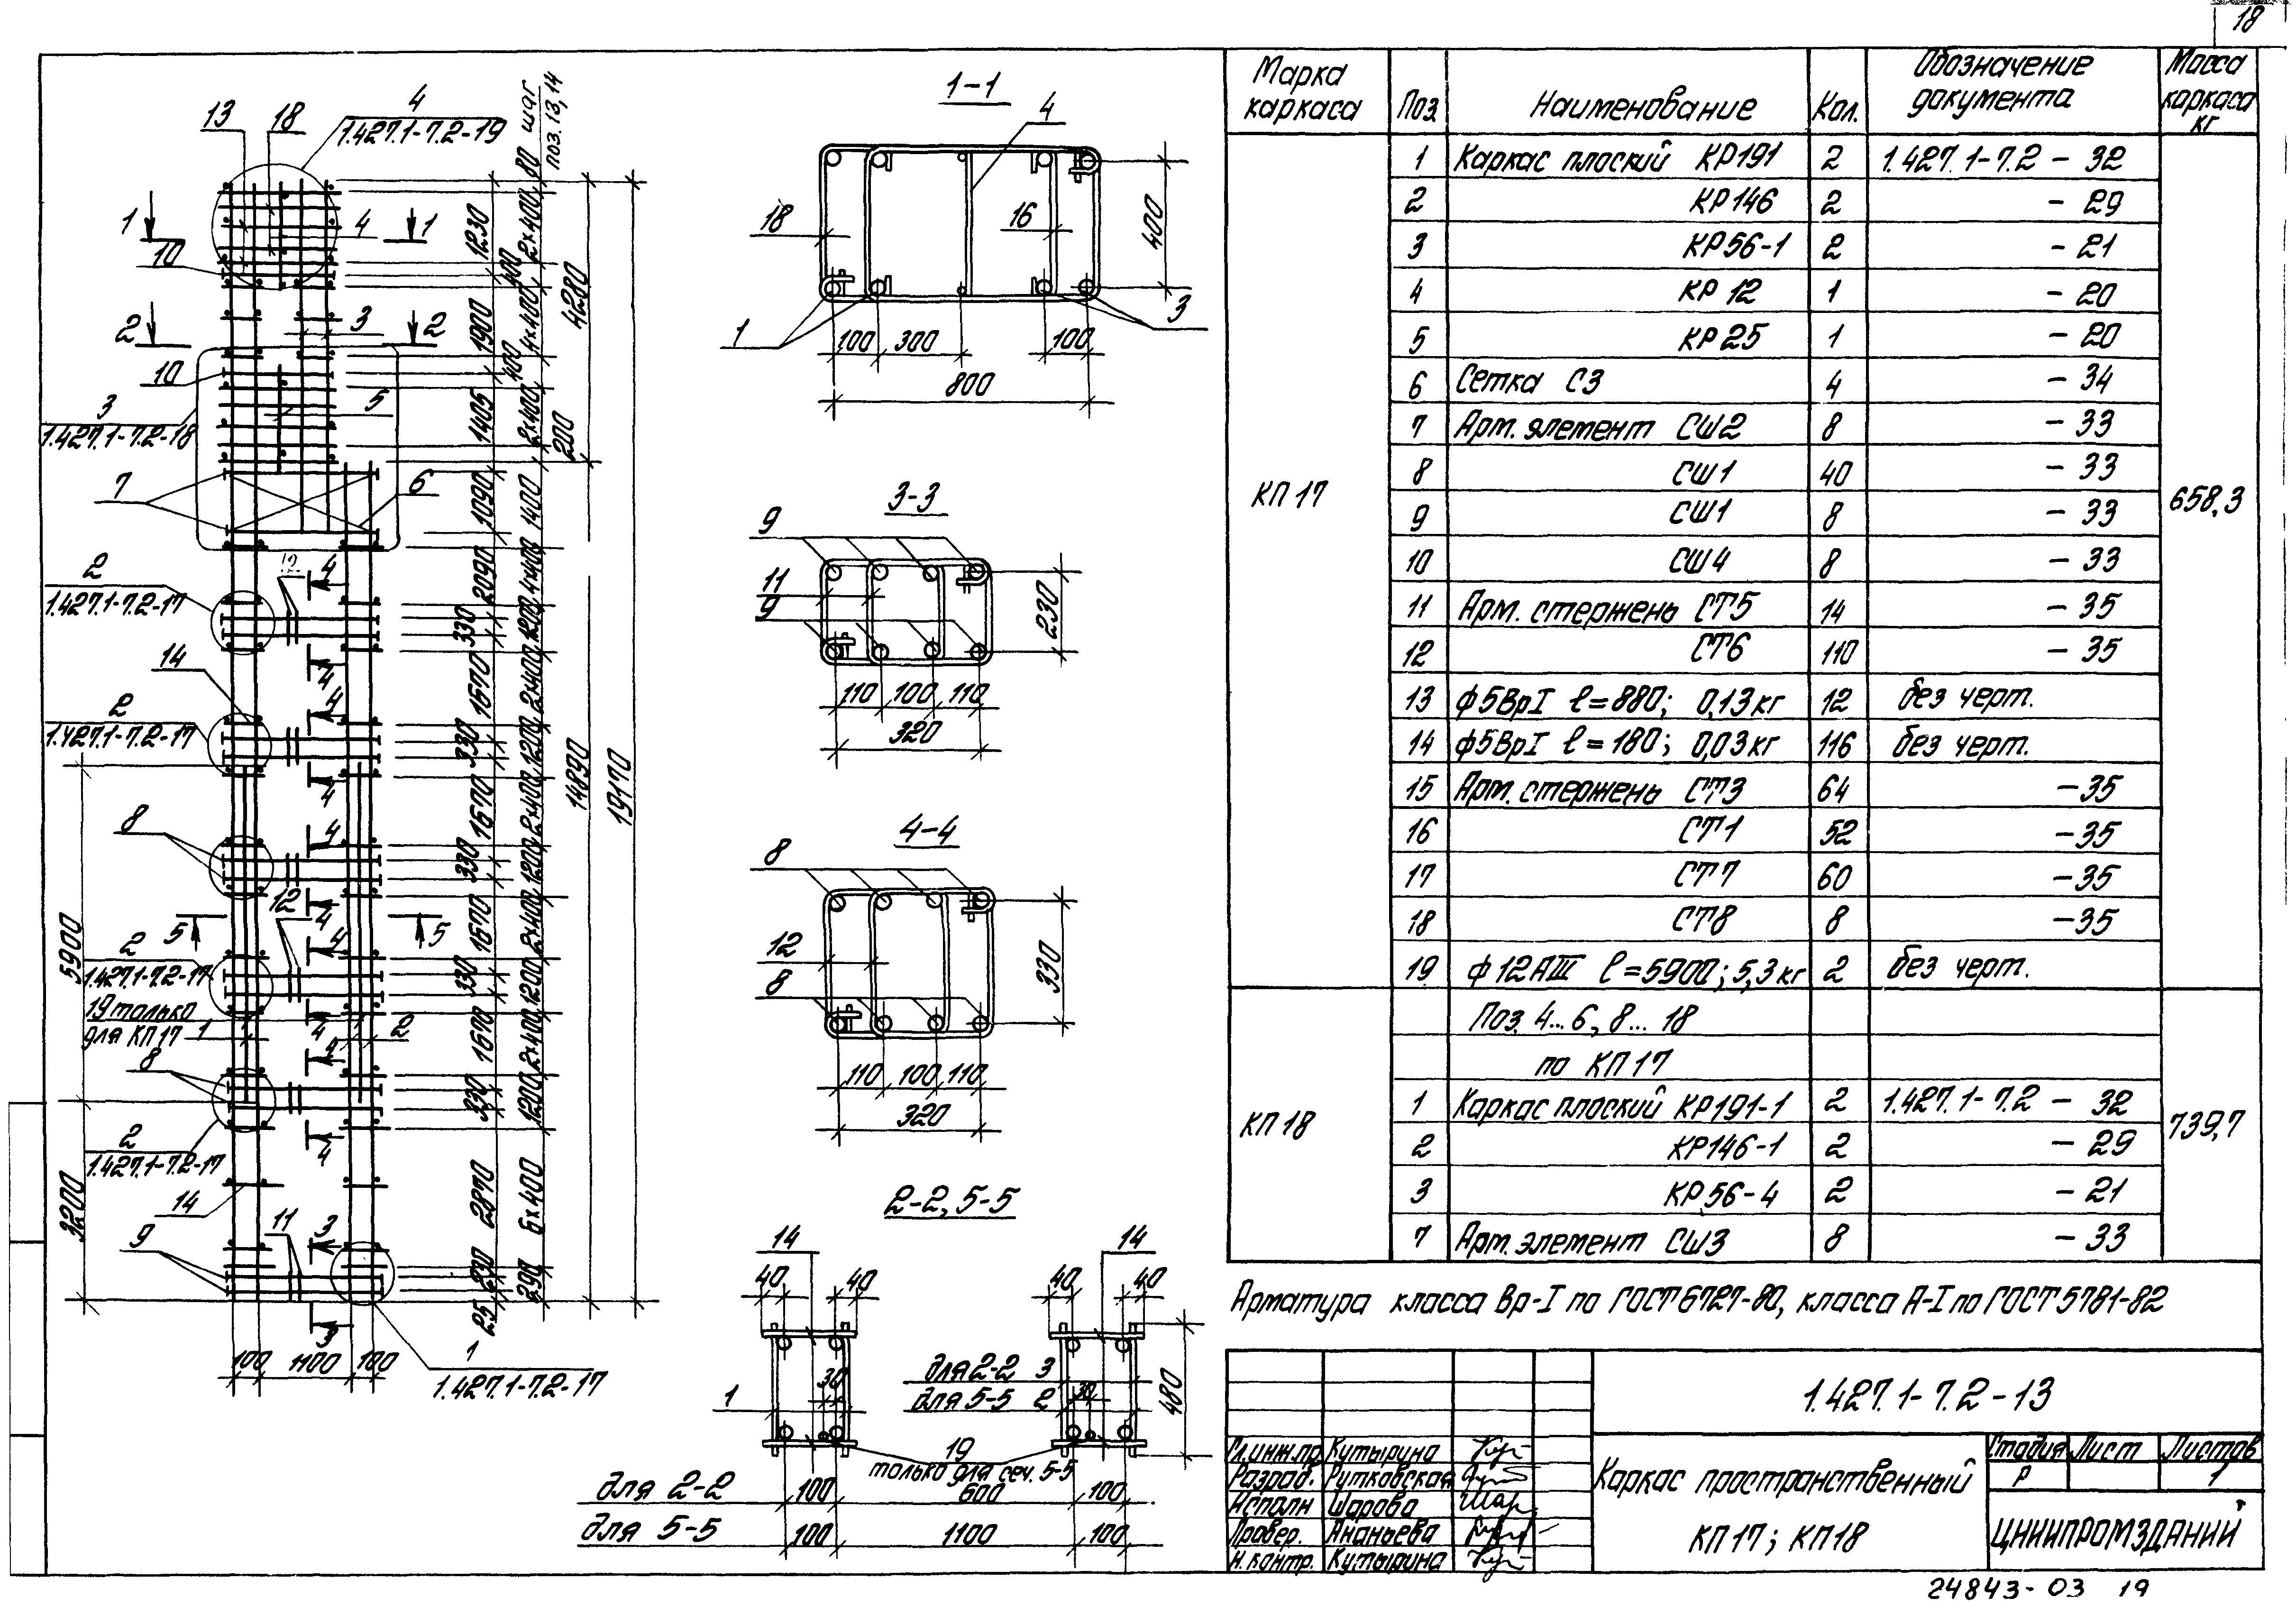 18
13
18
4
1.427.1-7.2-19
шаг
поз. 13, 14
80
1
1
4
10
2
2
3
10
3
1.427.1-7.2-18
5
7
6
2
1.427.1-7.2-17
12
4
14
4
4
2
1.427.1-7.2-17
4
8
4
12
4
5
5
2
1.427.1-7.2-17
4
19 только
для КП17
1
2
4
8
4
2
1.427.1-7.2-17
4
14
11
3
9
3
1
1.427.1-7.2-17
5900
3200
100
1100
100
1230
500
1900
400
1405
1090
2090
330
1670
330
1670
330
1670
330
1670
330
2870
230
25
2×400
4×400
2×400
200
1400
1×400
1200
2×400
1200
2×400
1200
2×400
1200
2×400
1200
6×400
290
4280
14890
19170
1-1
4
18
16
1
3
100
300
100
800
400
3-3
9
11
9
110
100
110
320
230
4-4
8
12
8
110
100
110
320
330
2-2, 5-5
14
14
40
40
40
40
30
30
1
для 2-2 3
для 5-5 2
480
19
только для сеч. 5-5
для 2-2
100
600
100
для 5-5
100
1100
100
Марка каркаса
Поз.
Наименование
Кол.
Обозначение документа
Масса каркаса кг
КП 17
658,3
1 Каркас плоский КР191 2 1.427.1-7.2 - 32
2 КР146 2 - 29
3 КР56-1 2 - 21
4 КР12 1 - 20
5 КР25 1 - 20
6 Сетка С3 4 - 34
7 Арм. элемент СШ2 8 - 33
8 СШ1 40 - 33
9 СШ1 8 - 33
10 СШ4 8 - 33
11 Арм. стержень СТ5 14 - 35
12 СТ6 110 - 35
13 ф5ВрI ℓ=880; 0,13кг 12 без черт.
14 ф5ВрI ℓ=180; 0,03кг 116 без черт.
15 Арм. стержень СТ3 64 -35
16 СТ1 52 -35
17 СТ7 60 -35
18 СТ8 8 -35
19 ф12АIII ℓ=5900; 5,3кг 2 без черт.
КП 18
739,7
Поз. 4...6, 8...18
по КП17
1 Каркас плоский КР191-1 2 1.427.1-7.2 - 32
2 КР146-1 2 - 29
3 КР56-4 2 - 21
7 Арм. элемент СШ3 8 - 33
Арматура класса Вр-I по ГОСТ 6727-80, класса А-I по ГОСТ 5781-82
1.427.1-7.2-13
Гл.инж.пр. Кутырина
Разраб. Рутковская
Исполн Шарова
Провер. Ананьева
Н.контр. Кутырина
Каркас пространственный
КП17; КП18
Стадия Лист Листов
Р 1
ЦНИИПРОМЗДАНИЙ
24843-03 19